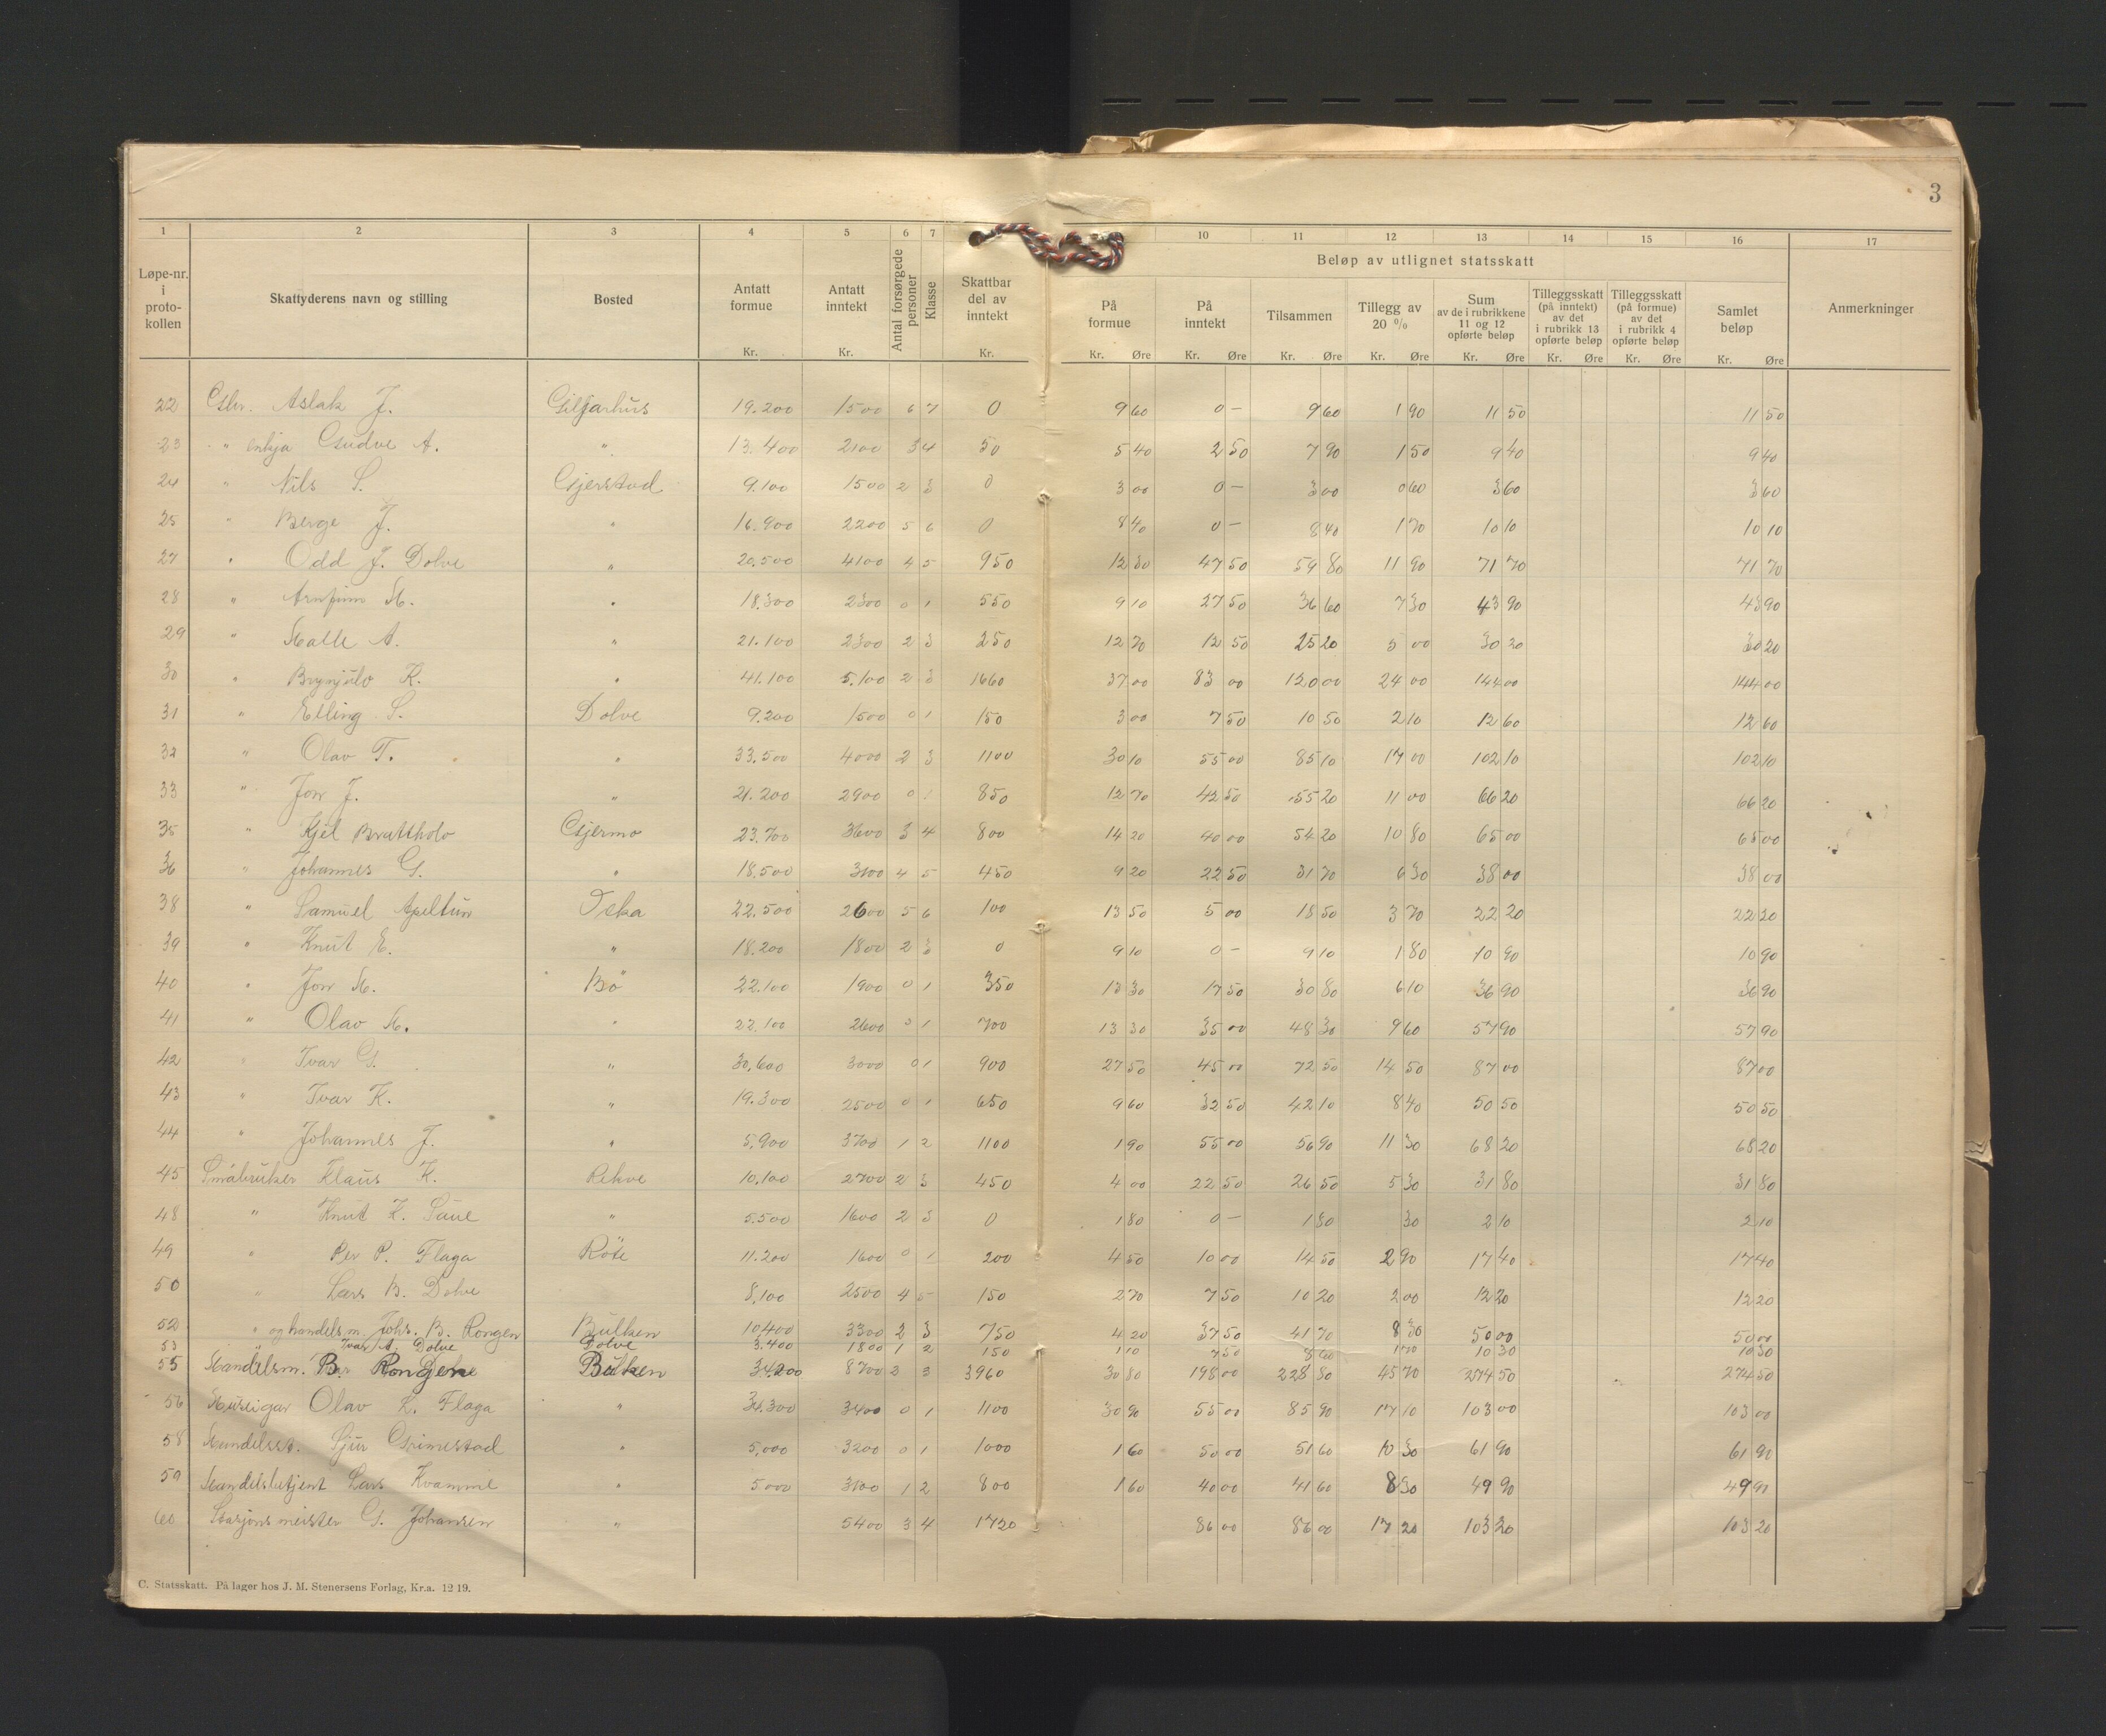 3
1 2 3 4 5 6 7 10 11 12 13 14 15 16 17
Løpe-nr. i proto- kollen
Skattyderens navn og stilling
Bosted
Antatt formue Kr.
Antatt inntekt Kr.
Antal forsørgede personer
Klasse
Skattbar del av inntekt Kr.
Beløp av utlignet statsskatt
På formue Kr. Øre
På inntekt Kr. Øre
Tilsammen Kr. Øre
Tillegg av 20 % Kr. Øre
Sum av de i rubrikkene 11 og 12 opførte beløp Kr. Øre
Tilleggsskatt (på inntekt) av det i rubrikk 13 opførte beløp Kr. Øre
Tilleggsskatt (på formue) av det i rubrikk 4 opførte beløp Kr. Øre
Samlet beløp Kr. Øre
Anmerkninger
22 Gbr. Aslak J. Giljarhus 19.200 1500 6 7 0 9 60 0 – 9 60 1 90 11 50 11 50
23 " enkja Gudve A. " 13.400 2100 3 4 50 5 40 2 50 7 90 1 50 9 40 9 40
24 " Nils S. Gjerstad 9.100 1500 2 3 0 3 00 0 – 3 00 0 60 3 60 3 60
25 " Berge J. " 16.900 2200 5 6 0 8 40 0 – 8 40 1 70 10 10 10 10
27 " Odd J. Dolve " 20.500 4100 4 5 950 12 30 47 50 59 80 11 90 71 70 71 70
28 " Arnfinn H. " 18.300 2300 0 1 550 9 10 27 50 36 60 7 30 43 90 43 90
29 " Halle A. " 21.100 2300 2 3 250 12 70 12 50 25 20 5 00 30 20 30 20
30 " Brynjulv K. " 41.100 5.100 2 3 1660 37 00 83 00 120 00 24 00 144 00 144 00
31 " Elling S. Dolve 9.200 1500 0 1 150 3 00 7 50 10 50 2 10 12 60 12 60
32 " Olav T. " 33.500 4000 2 3 1100 30 10 55 00 85 10 17 00 102 10 102 10
33 " Jon J. " 21.200 2900 0 1 850 12 70 42 50 55 20 11 00 66 20 66 20
35 " Kjel Brattholv Gjermo 23.700 3600 3 4 800 14 20 40 00 54 20 10 80 65 00 65 00
36 " Johannes G. " 18.500 3100 4 5 450 9 20 22 50 31 70 6 30 38 00 38 00
38 " Samuel Apeltun Teka 22.500 2600 5 6 100 13 50 5 00 18 50 3 70 22 20 22 20
39 " Knut E. " 18.200 1800 2 3 0 9 10 0 – 9 10 1 80 10 90 10 90
40 " Jon H. Bö 22.100 1900 0 1 350 13 30 17 50 30 80 6 10 36 90 36 90
41 " Olav H. " 22.100 2600 0 1 700 13 30 35 00 48 30 9 60 57 90 57 90
42 " Ivar G. " 30.600 3000 0 1 900 27 50 45 00 72 50 14 50 87 00 87 00
43 " Ivar K. " 19.300 2500 0 1 650 9 60 32 50 42 10 8 40 50 50 50 50
44 " Johannes J. " 5.900 3700 1 2 1100 1 90 55 00 56 90 11 30 68 20 68 20
45 Småbruker Klaus K. Rekve 10.100 2700 2 3 450 4 00 22 50 26 50 5 30 31 80 31 80
48 " Knut K. Saue " 5.500 1600 2 3 0 1 80 0 – 1 80 30 2 10 2 10
49 " Per P. Flaga Röte 11.200 1600 0 1 200 4 50 10 00 14 50 2 90 17 40 17 40
50 " Lars B. Dolve 8.100 2500 4 5 150 2 70 7 50 10 20 2 00 12 20 12 20
52 " og handelsm. Johs. B. Rongen Bulken 10.400 3300 2 3 750 4 20 37 50 41 70 8 30 50 00 50 00
53 " Ivar A. Dolve Dolve 3.400 1800 1 2 150 1 10 7 50 8 60 1 70 10 30 10 30
55 Handelsm. Rongen Bulken 34200 8700 2 3 3960 30 80 198 00 228 80 45 70 274 50 274 50
56 Huseigar Olav K. Flaga " 34.300 3400 0 1 1100 30 90 55 00 85 90 17 10 103 00 103 00
58 Handelsst. Sjur Grimestad " 5.000 3200 0 1 1000 1 60 50 00 51 60 10 30 61 90 61 90
59 Handelsbetjent Lars Kvamme " 5000 3100 1 2 800 1 60 40 00 41 60 8 30 49 90 49 90
60 Stasjonsmeister G. Johansen " 5400 3 4 1720 86 00 86 00 17 20 103 20 103 20
C. Statsskatt. På lager hos J. M. Stenersens Forlag, Kr.a. 12 19.